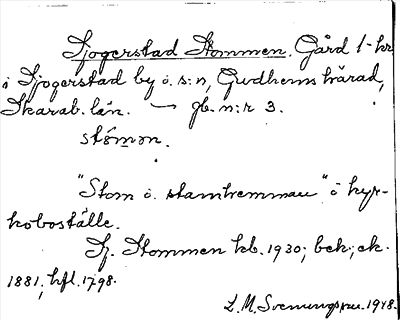 Sjogerstad Stommen. Gård 1-hr
i Sjogerstad by o. s:n, Gudhems härad,
Skarab. län. — gb. n:r 3.
stómən.
"Stom o. stamhemman" o kyr-
koboställe.
Sj. Stommen kb. 1930; bek; ek.
1881, hfl. 1798.
L. M. Svenungsson. 1948.